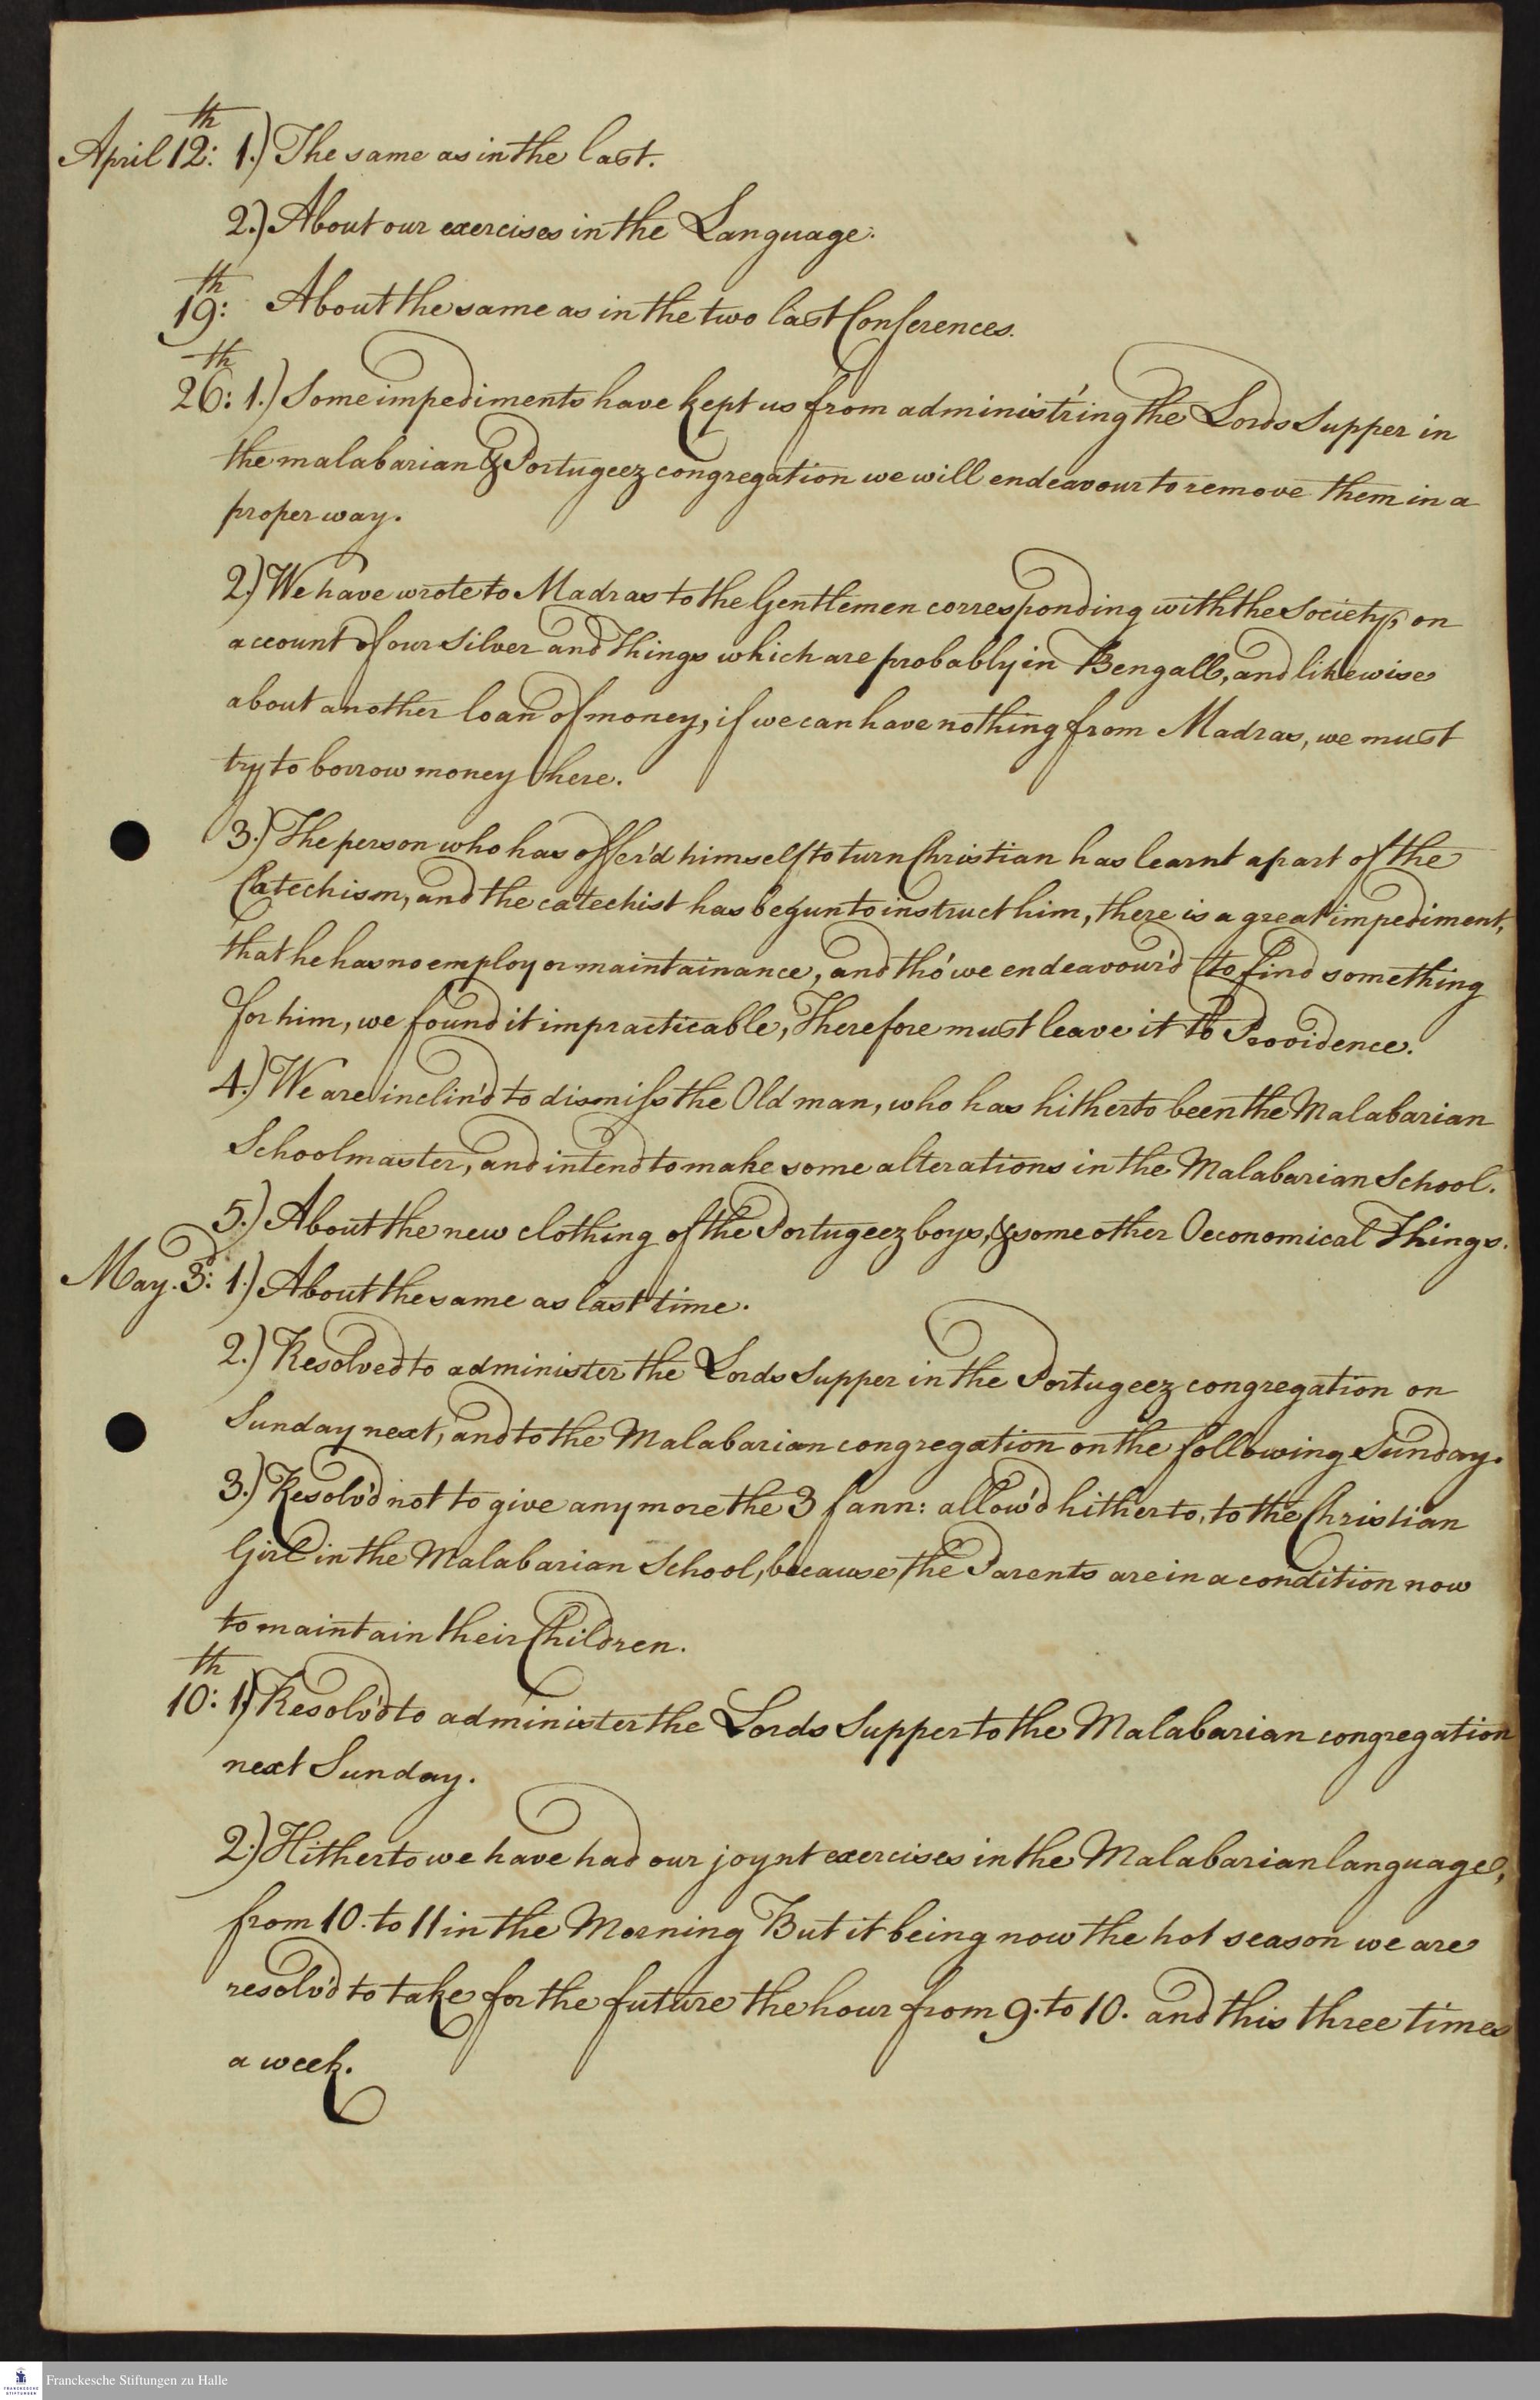 April 12th: 1.) The same as in the last.
2.) About our exercises in the Language.
19th: About the same as in the two last Conferences.
26th: 1.) Some impediments have kept us from administ'ring the Lords Supper in
the malabarian & Portugeez congregation we will endeavour to remove them in a
proper way.
2.) We have wrote to Madras to the Gentlemen corresponding with the Society, on
account of our Silver and Things which are probably in Bengall, and likewise
about another loan of money, if we can have nothing from Madras, we must
try to borrow money there.
3.) The person who has offer'd himself to turn Christian has learnt a part of the
Catechism, and the catechist has begun to instruct him, there is a great impediment,
that he has no employ or maintainance, and tho' we endeavour'd to find something
for him, we found it impracticable, Therefore must leave it to Providence.
4.) We are inclin'd to dismiss the Old man, who has hitherto been the Malabarian
Schoolmaster, and intend to make some alterations in the Malabarian School.
5.) About the new clothing of the Portugeez boys, & some other Oeconomical Things.
May. 3d: 1.) About the same as last time.
2.) Resolved to administer the Lords Supper in the Portugeez congregation on
Sunday next, and to the Malabarian congregation on the following Sunday.
3.) Resolv'd not to give any more the 3 fann: allow'd hitherto, to the Christian
Girl in the Malabarian School, because the Parents are in a condition now
to maintain their Children.
10th: 1.) Resolv'd to administer the Lords Supper to the Malabarian congregation
next Sunday.
2.) Hitherto we have had our joynt exercises in the Malabarian language,
from 10. to 11 in the Morning But it being now the hot season we are
resolv'd to take for the future the hour from 9. to 10. and this three times
a week.
Franckesche Stiftungen zu Halle